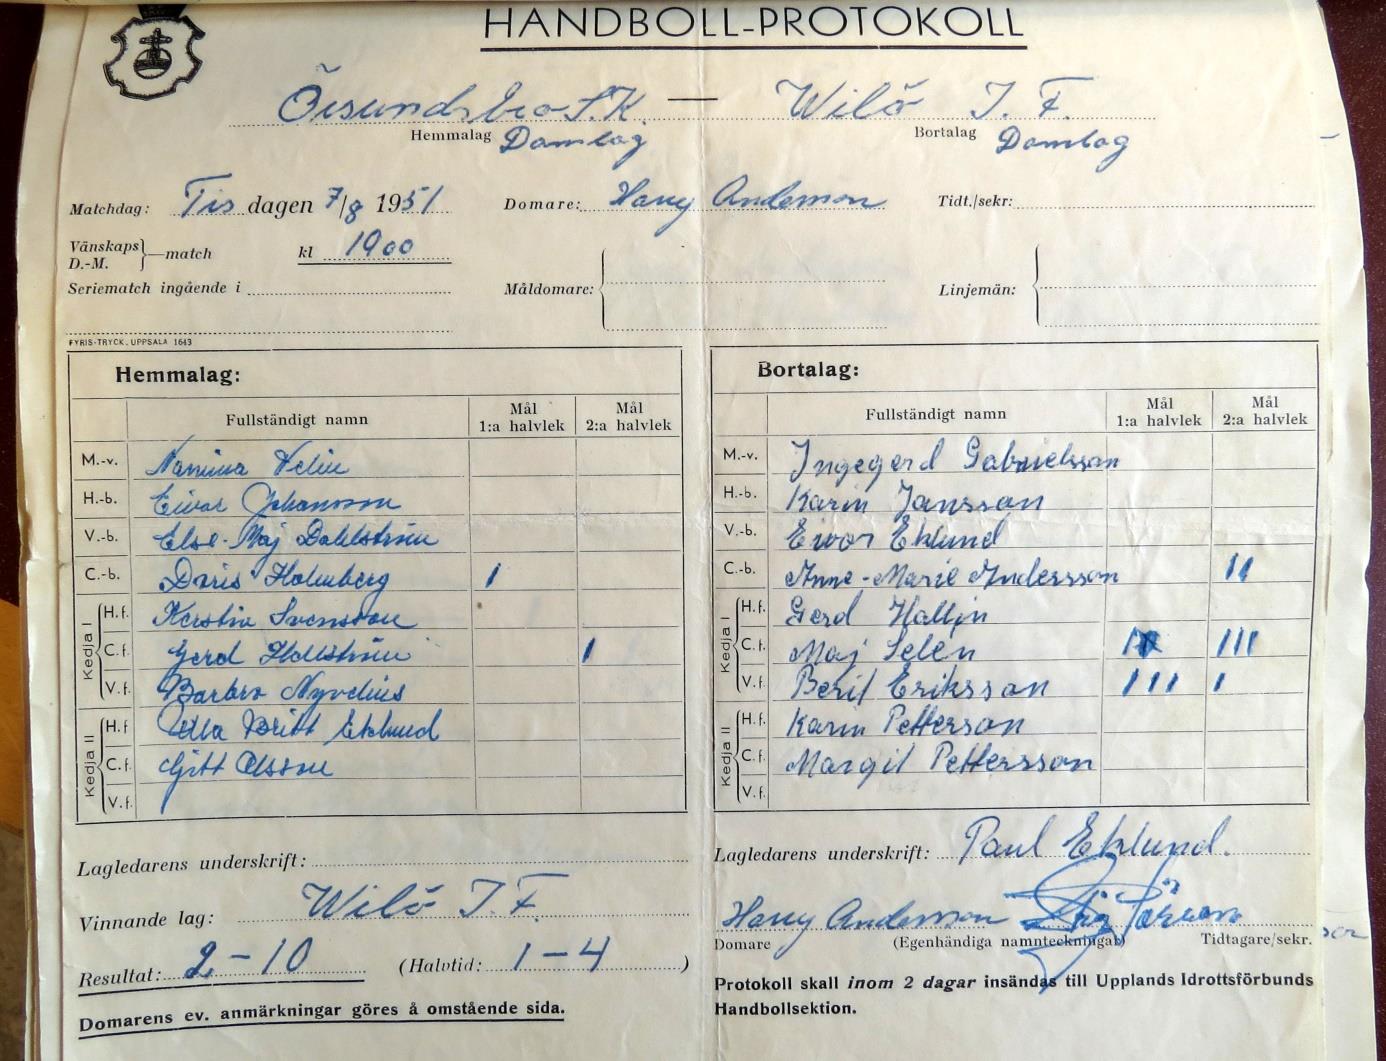 HANDBOLL-PROTOKOLL
Örsundsbro S.K. — Wilö I. F.
Hemmalag Damlag Bortalag Damlag
Matchdag: Tis dagen 7/8 1951 Domare: Harry Andersson Tidt./sekr:
Vänskaps
D.-M. —match kl 1900
Seriematch ingående i Måldomare: Linjemän:
FYRIS-TRYCK. UPPSALA 1643
Hemmalag:
Fullständigt namn Mål 1:a halvlek Mål 2:a halvlek
M.-v.
H.-b. Eivor Johansson
V.-b. Else-Maj Dahlström
C.-b. Doris Holmberg I
Kedja I
H.f. Kerstin Svensson
C.f. Gerd Hallström I
V.f. Barbro Nyvelius
Kedja II
H.f. Ulla Britt Eklund
C.f. Gitt Olsson
V.f.
Lagledarens underskrift:
Vinnande lag: Wilö I. F.
Resultat: 2-10 (Halvtid: 1-4 )
Domarens ev. anmärkningar göres å omstående sida.
Bortalag:
Fullständigt namn Mål 1:a halvlek Mål 2:a halvlek
M.-v. Ingegerd Gabrielsson
H.-b. Karin Jansson
V.-b. Eivor Eklund
C.-b. Anne-Marie Andersson II
Kedja I
H.f. Gerd Hallin
C.f. Maj Selén I III
V.f. Berit Eriksson III I
Kedja II
H.f. Karin Petterson
C.f. Margit Pettersson
V.f.
Lagledarens underskrift: Paul Eklund.
Harry Andersson
Domare (Egenhändiga namnteckningar) Tidtagare/sekr.
Protokoll skall inom 2 dagar insändas till Upplands Idrottsförbunds
Handbollsektion.